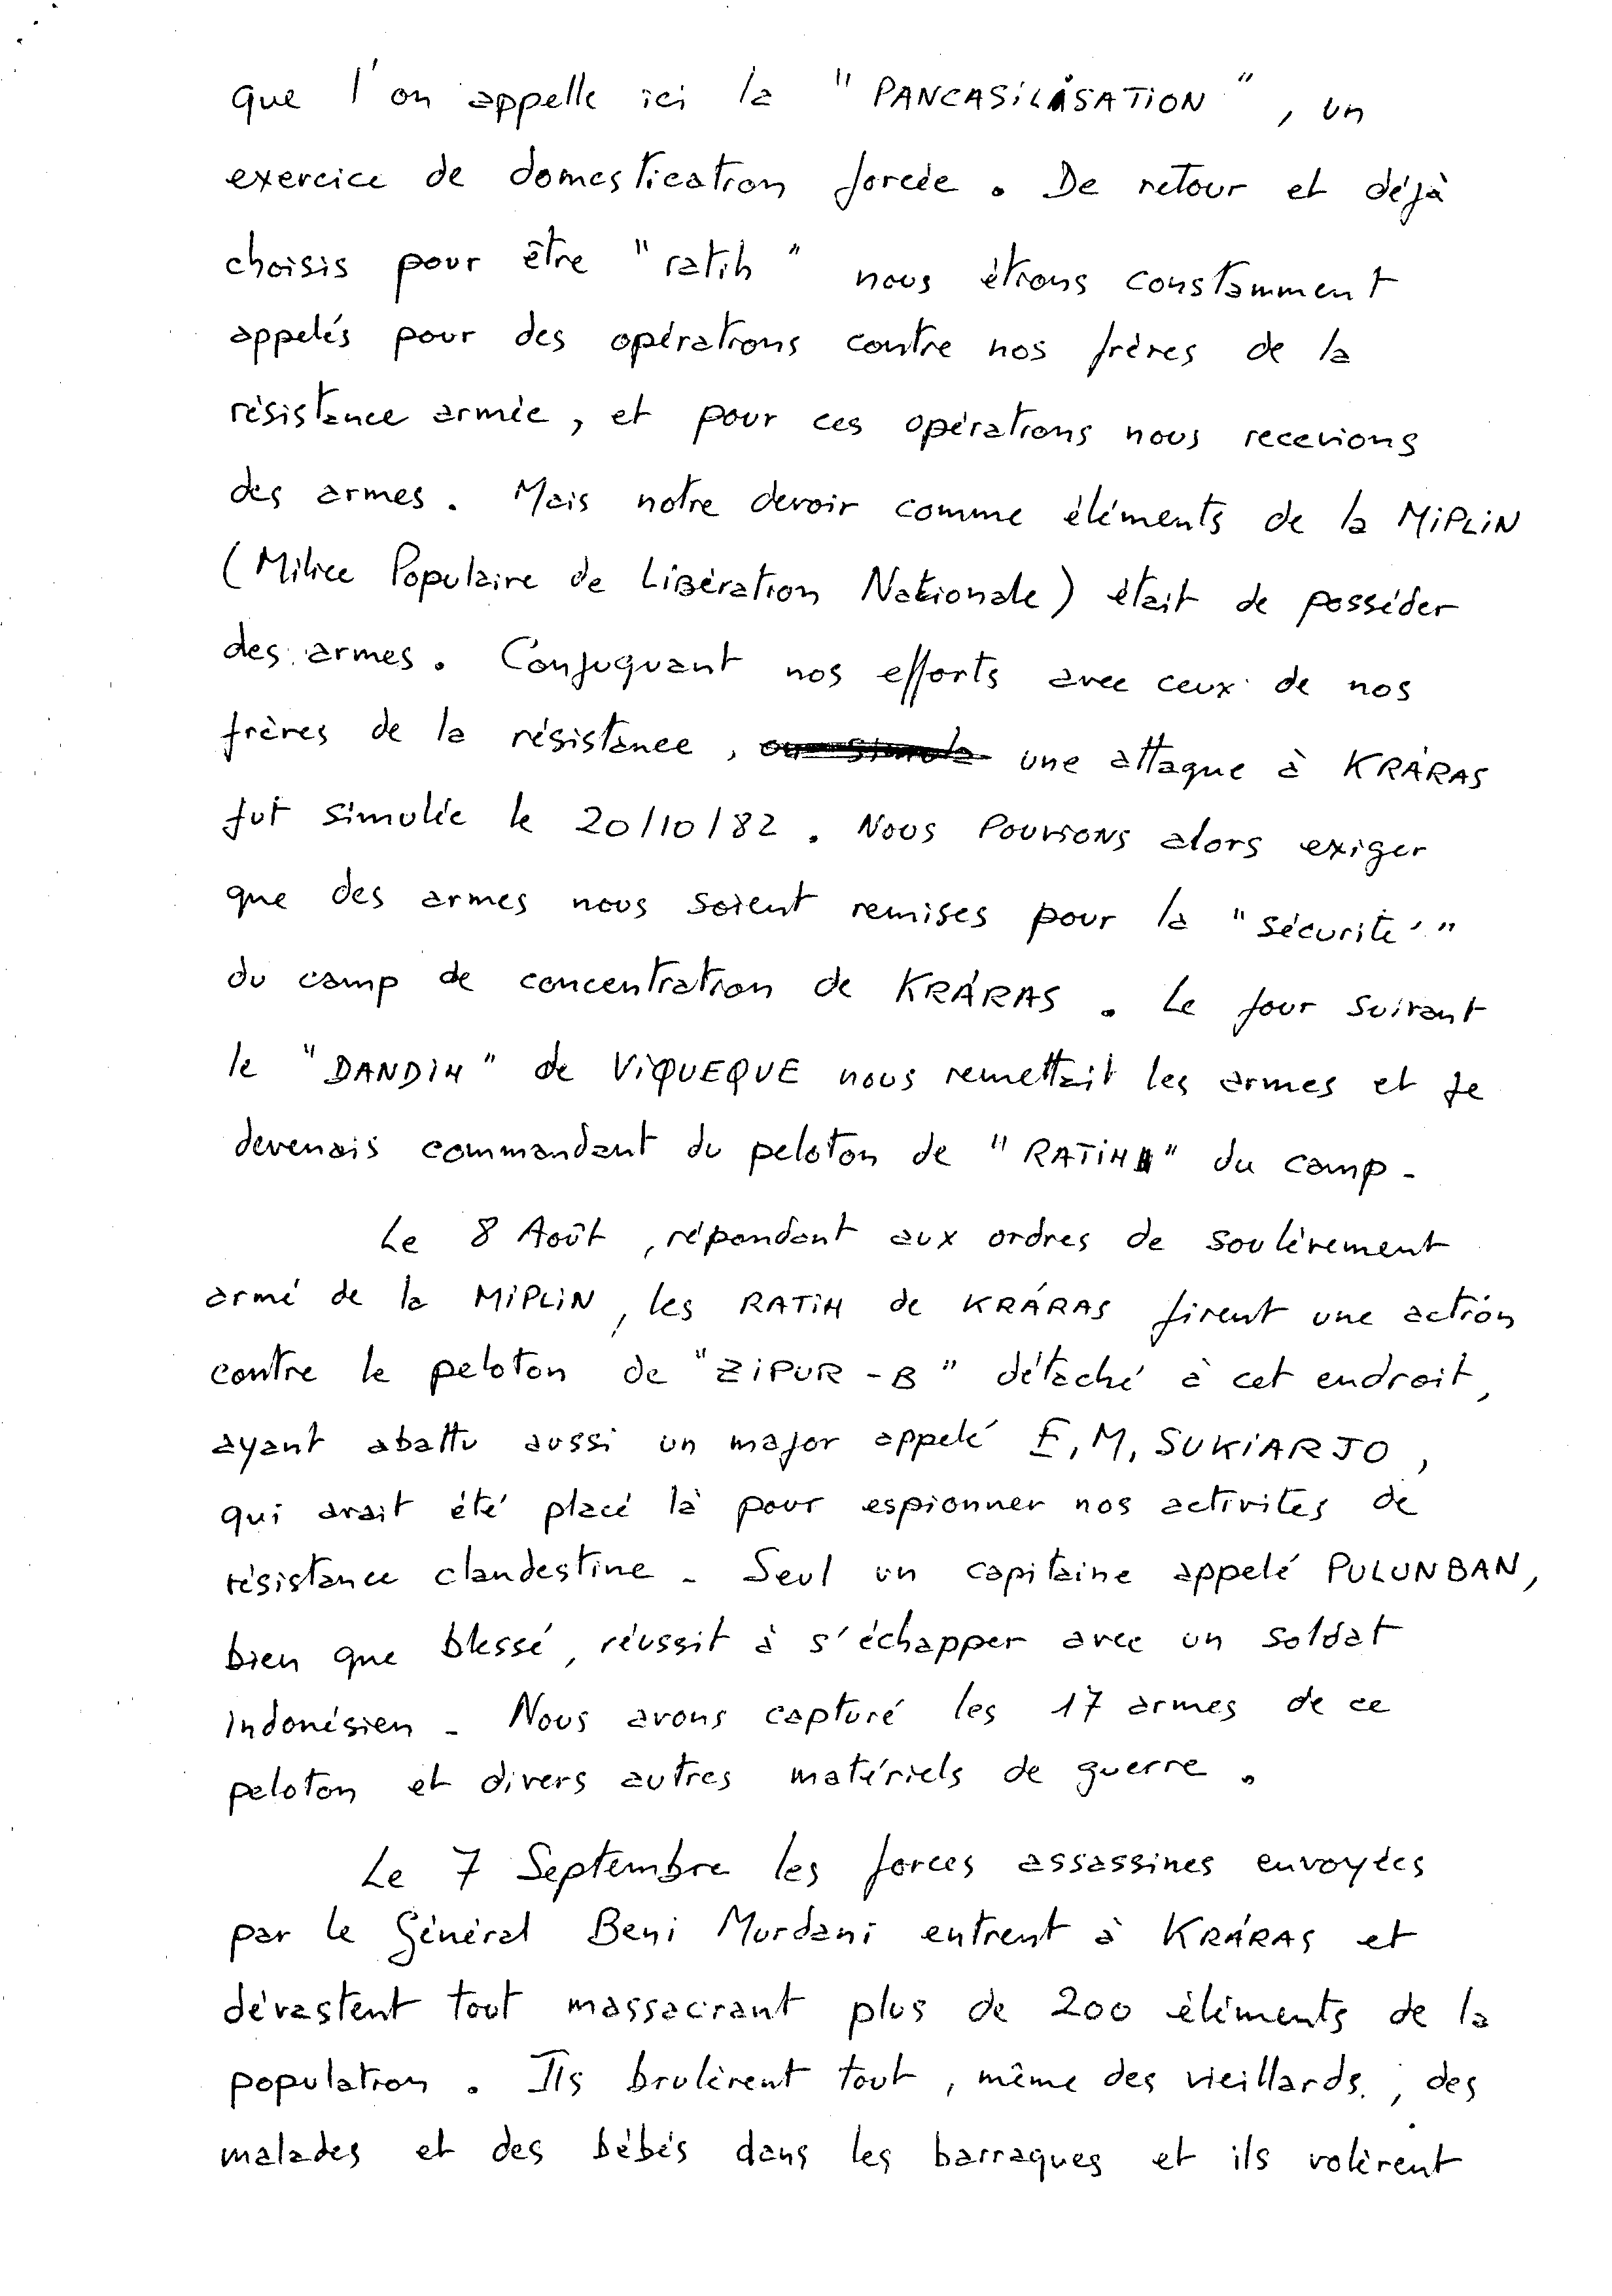 que l'on appelle ici la "PANCASILISATION", un
exercice de domestication forcée. De retour et déjà
choisis pour être "ratih" nous étions constamment
appelés pour des opérations contre nos frères de la
résistance armée, et pour ces opérations nous recevions
des armes. Mais notre devoir comme éléments de la MIPLIN
(Milice Populaire de Libération Nationale) était de posséder
des armes. Conjuguant nos efforts avec ceux de nos
frères de la résistance, une attaque à KRÁRAS
fut simulée le 20/10/82. Nous pouvions alors exiger
que des armes nous soient remises pour la "sécurité"
du camp de concentration de KRÁRAS. Le jour suivant
le "DANDIH" de VIQUEQUE nous remettait les armes et je
devenais commandant du peloton de "RATIH" du camp.
Le 8 Août, répondant aux ordres de soulèvement
armé de la MIPLIN, les RATIH de KRÁRAS firent une action
contre le peloton de "ZIPUR-B" détaché à cet endroit,
ayant abattu aussi un major appelé E, M, SUKIARJO,
qui avait été placé là pour espionner nos activités de
résistance clandestine. Seul un capitaine appelé PULUNBAN,
bien que blessé, réussit à s'échapper avec un soldat
indonésien. Nous avons capturé les 17 armes de ce
peloton et divers autres matériels de guerre.
Le 7 Septembre les forces assassines envoyées
par le Général Beni Murdani entrent à KRÁRAS et
dévastent tout massacrant plus de 200 éléments de la
population. Ils brulèrent tout, même des vieillards, des
malades et des bébés dans les barraques et ils volèrent